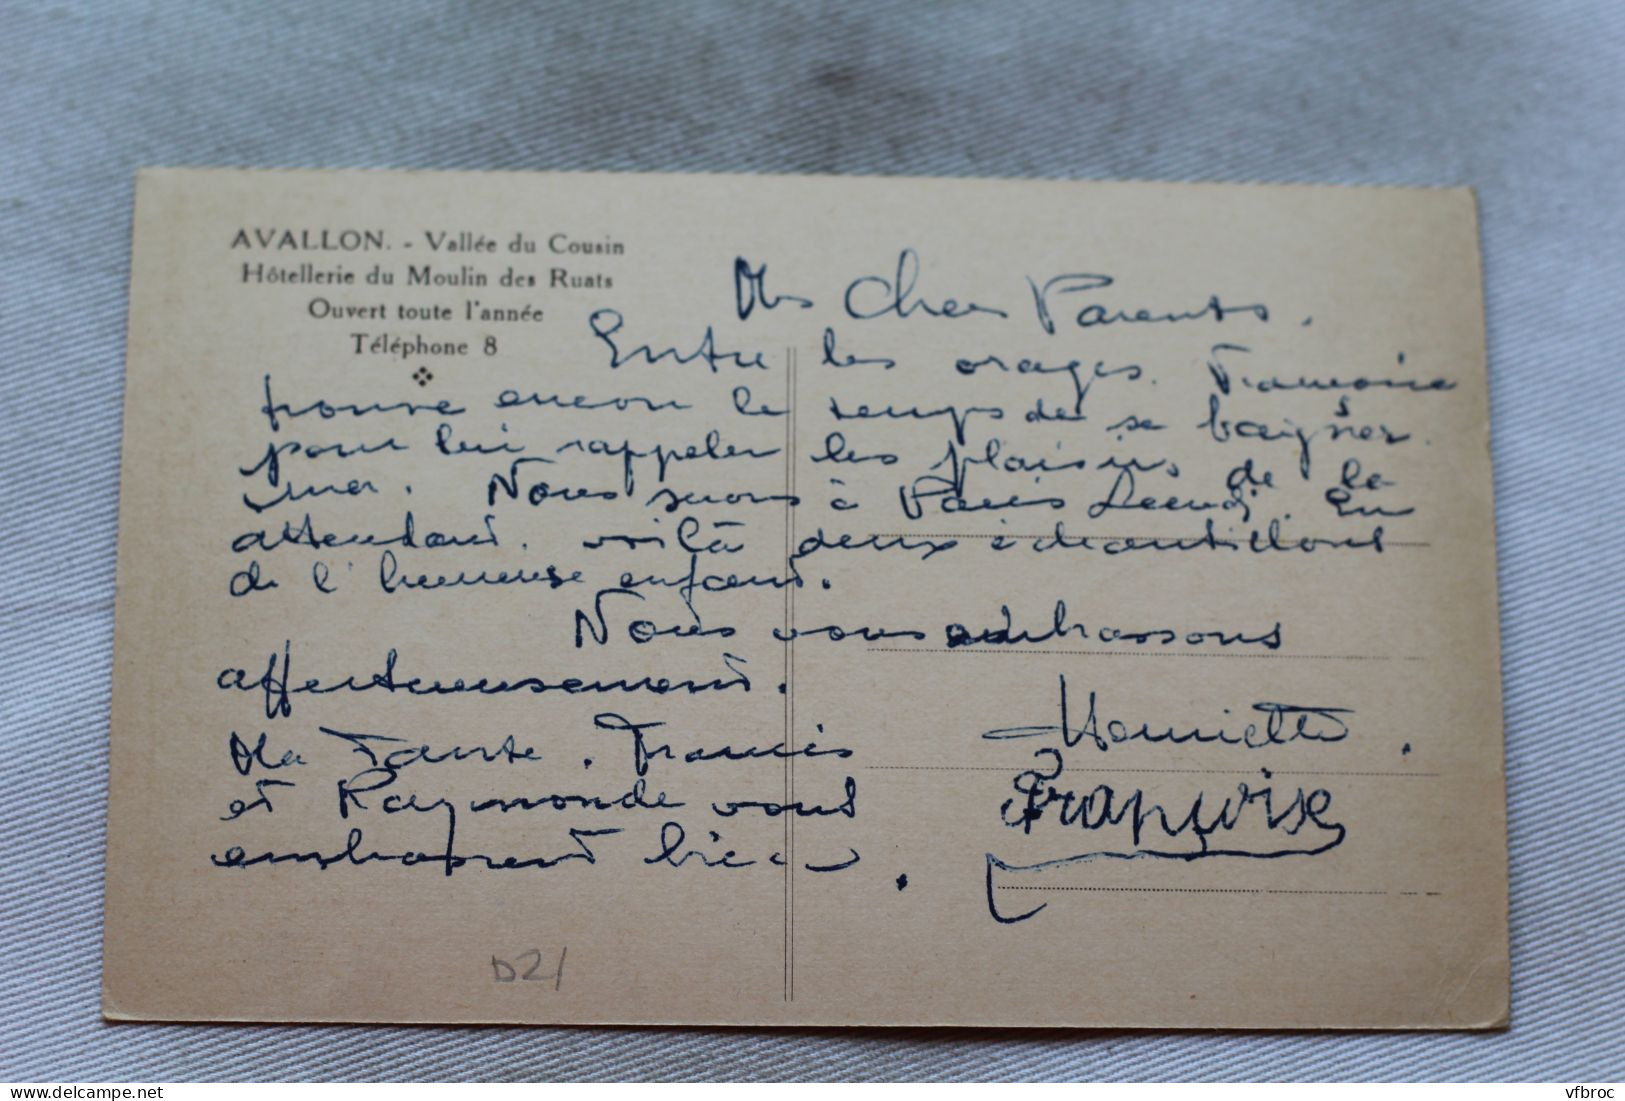 AVALLON. - Vallée du Cousin
Hôtellerie du Moulin des Ruats
Ouvert toute l'année
Téléphone 8
Mes Chers Parents.
Entre les orages. Françoise
trouve encore le temps de se baigner
pour lui rappeler les plaisirs de la
mer. Nous serons à Paris Lundi. En
attendant. voilà deux échantillons
de l'heureuse enfant.
Nous vous embrassons
affectueusement.
Henriette.
Françoise
Ma Tante. Francis
et Raymonde vous
embrassent bien.
D21
vfbroc